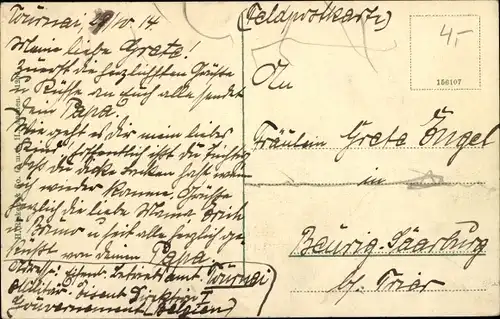 Tournai 29/10 14.
Meine liebe Grete!
Zuerst die herzlichsten Grüße
u Küsse an Euch alle sendet
Dein Papa.
Wie geht es dir mein liebes
Kind. Hoffentlich ißt du tüchtig
daß du dicke Backen hast wenn
ich wieder komme. Grüße
herzlich die liebe Mama, Erich
u Benno u seid alle herzlich ge-
küßt von deinem Papa.
Adresse: Eisenb. Betriebsamt Tournai
Militär. Eisenb Direktion I
Gouvernement (Belgien)
(Feldpostkarte)
4,-
156107
An
Fräulein Grete Engel
in
Beurig-Saarburg
bz. Trier